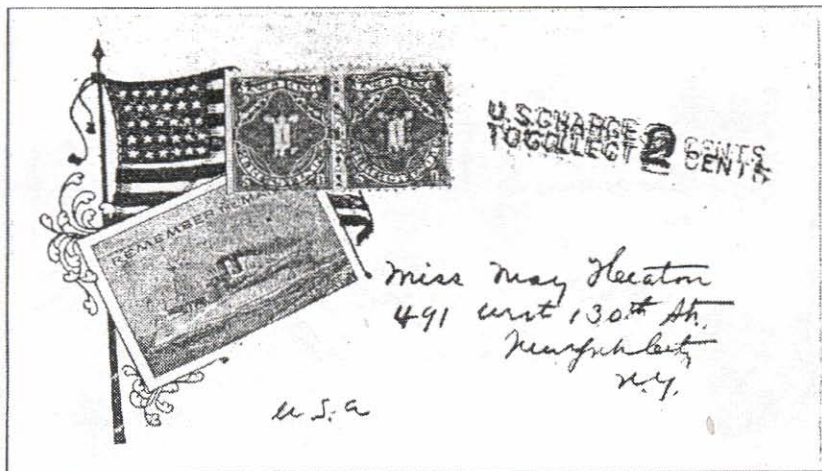 U.S. CHARGE
TO COLLECT 2 CENTS
CENTS
REMEMBER
Miss May Heaton
491 West 130th St.
New York City
N.Y.
U.S.A